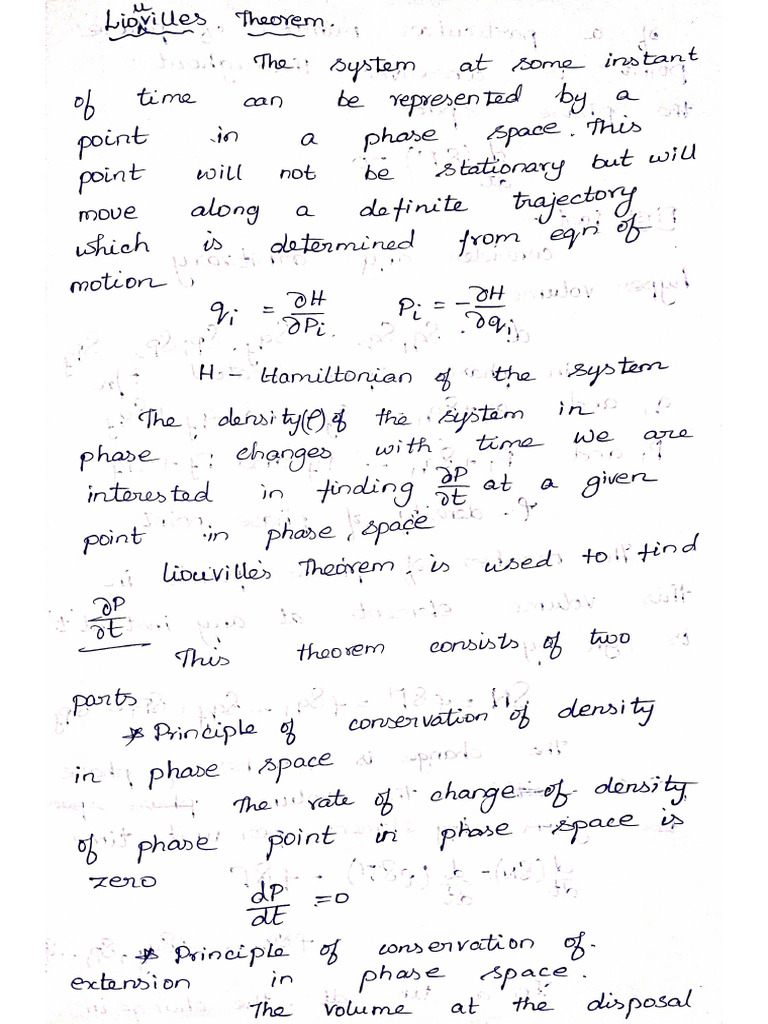 Liouvilles Theorem.
The system at some instant
of time can be represented by a
point in a phase space. This
point will not be stationary but will
move along a definite trajectory
which is determined from eqn of
motion.
qi = ∂H/∂Pi Pi = -∂H/∂qi
H - Hamiltonian of the system
The density(ρ) of the system in
phase changes with time we are
interested in finding ∂P/∂t at a given
point in phase space
Liouville's Theorem is used to find
∂P/∂t
This theorem consists of two
parts
* Principle of conservation of density
in phase space
The rate of change of density
of phase point in phase space is
zero
dP/dt = 0
* Principle of conservation of
extension in phase space.
The volume at the disposal